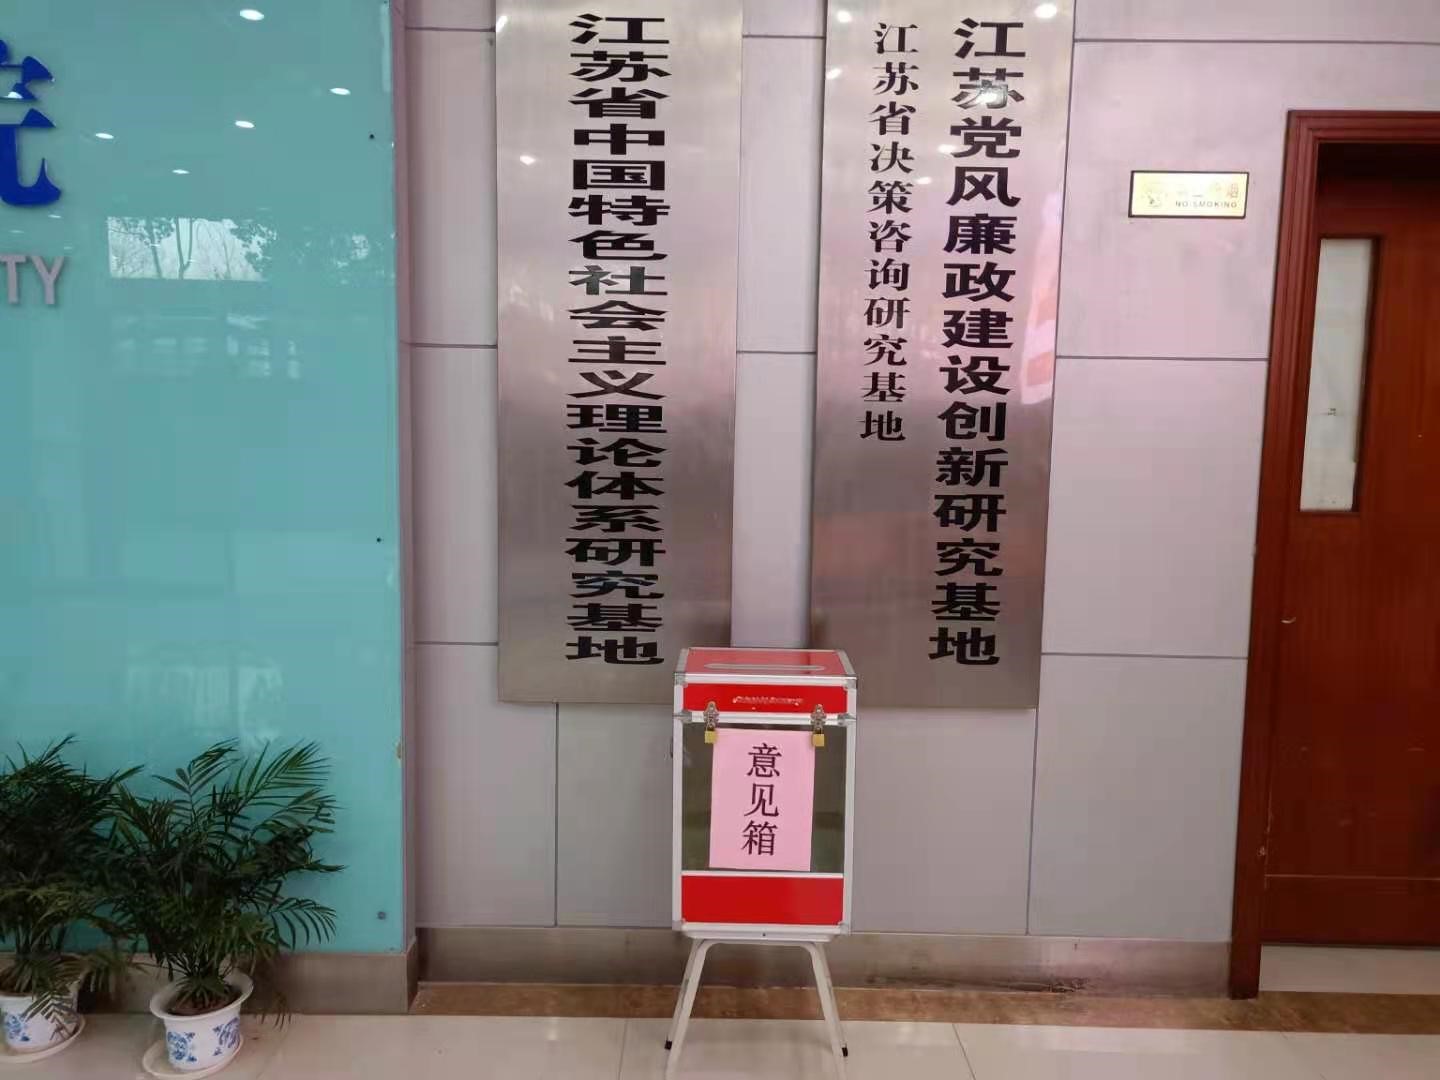 院
TY
江苏省中国特色社会主义理论体系研究基地
江苏党风廉政建设创新研究基地
江苏省决策咨询研究基地
NO SMOKING
意见箱